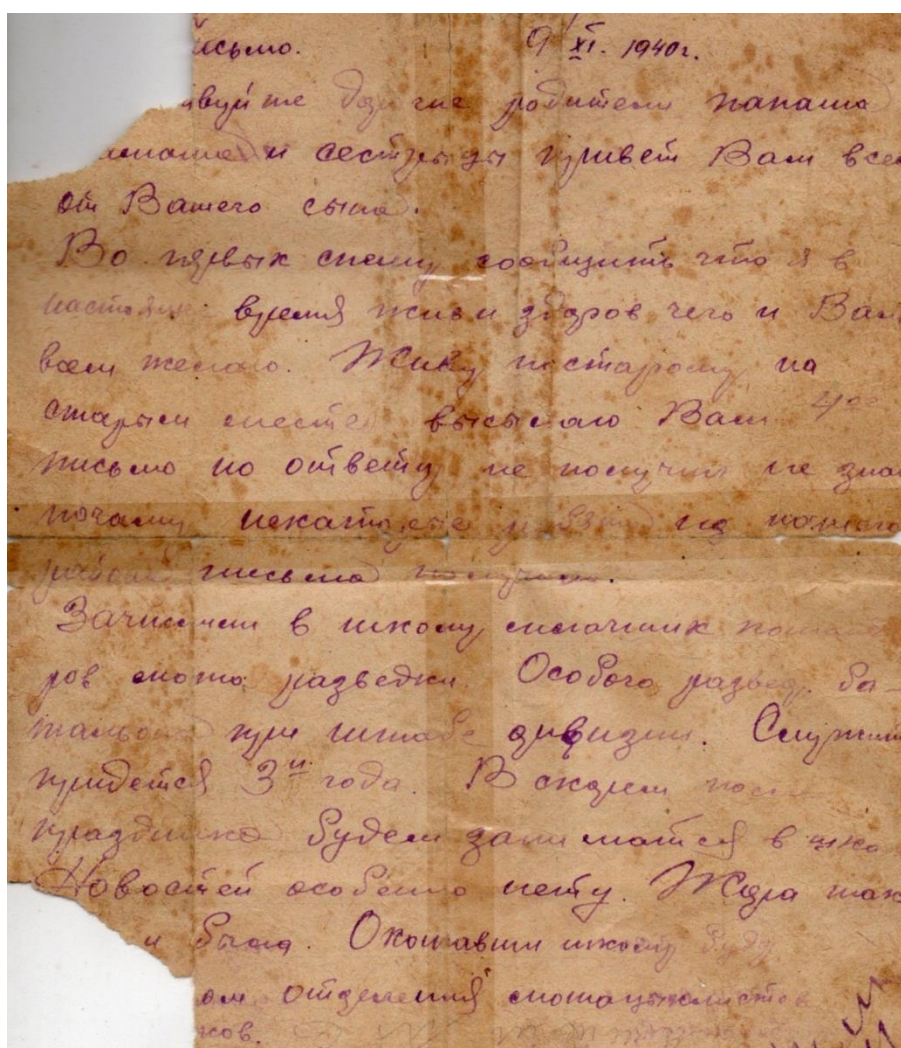 исьмо. 9/XI. 1940г.
вуйте дорогие родители папаша
мамаша и сестрицы привет Вам всем
от Вашего сына.
Во первых спешу сообщить что я в
настояще время жив и здоров чего и Вам
всем желаю. Живу постарому на
старым месте высылаю Вам 4ое
письмо но ответу не получил не знаю
почаму
письма
Зачислили в школу
ров мото разведки. Особого развед. ба-
тальона при штабе дивизии. Служить
придется 3и года. В скорем после
праздника будем заниматся в шко
Новостей особенно нету. Жара так
и была. Окончавши школу буду
ом отделения мотоциклистов
ков.